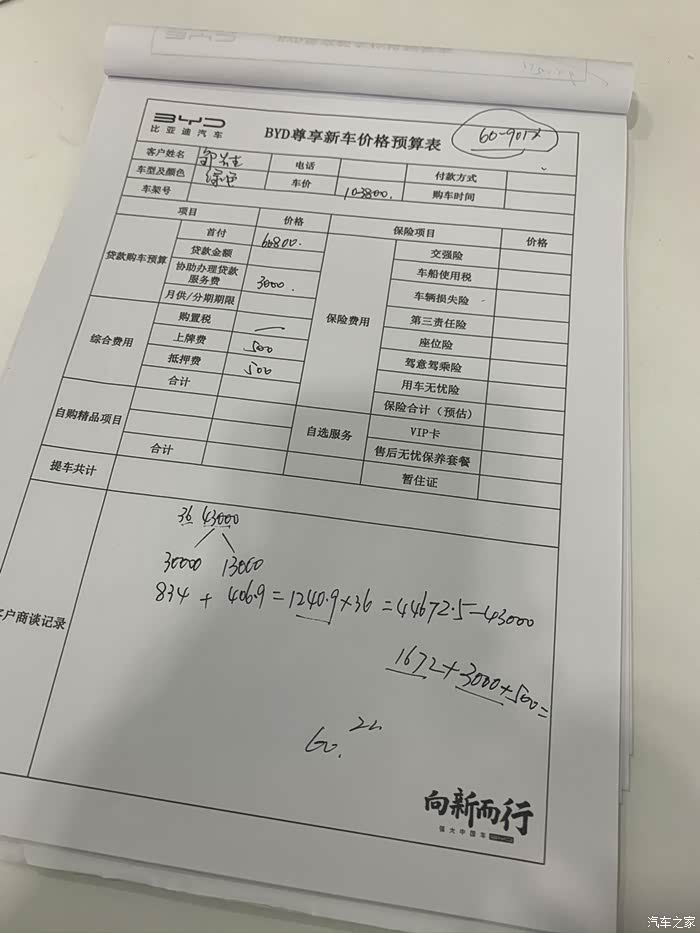 BYD
比亚迪汽车
BYD尊享新车价格预算表
60-901X
客户姓名
电话
付款方式
车型及颜色
车价 103800.
购车时间
车架号
项目 价格 保险项目 价格
贷款购车预算
首付 60800.
贷款金额
协助办理贷款服务费 3000.
月供/分期期限
综合费用
购置税 —
上牌费 500
抵押费 500
合计
自购精品项目
合计
保险费用
交强险
车船使用税
车辆损失险
第三责任险
座位险
驾意驾乘险
用车无忧险
保险合计（预估）
自选服务
VIP卡
售后无忧保养套餐
暂住证
提车共计
客户商谈记录
36 43000
30000 13000
834 + 406.9 = 1240.9 × 36 = 44672.5 - 43000
1672 + 3000 + 500 =
60.
向新而行
强大中国车
汽车之家